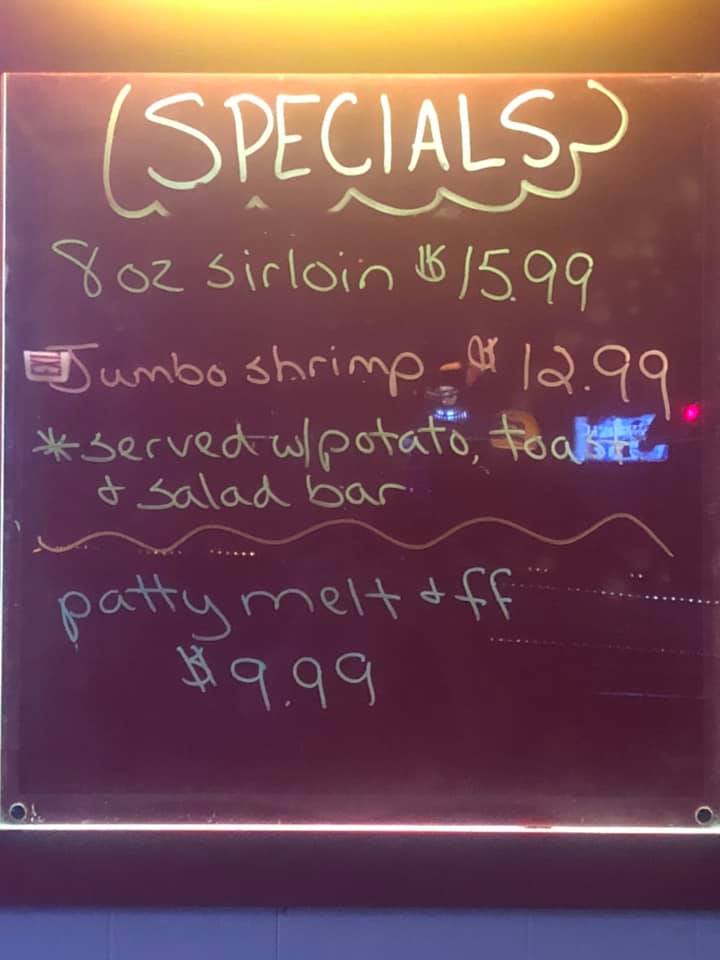 SPECIALS
8 oz sirloin $15.99
Jumbo shrimp - $12.99
*served w/potato, toast
& salad bar
patty melt & ff
$9.99